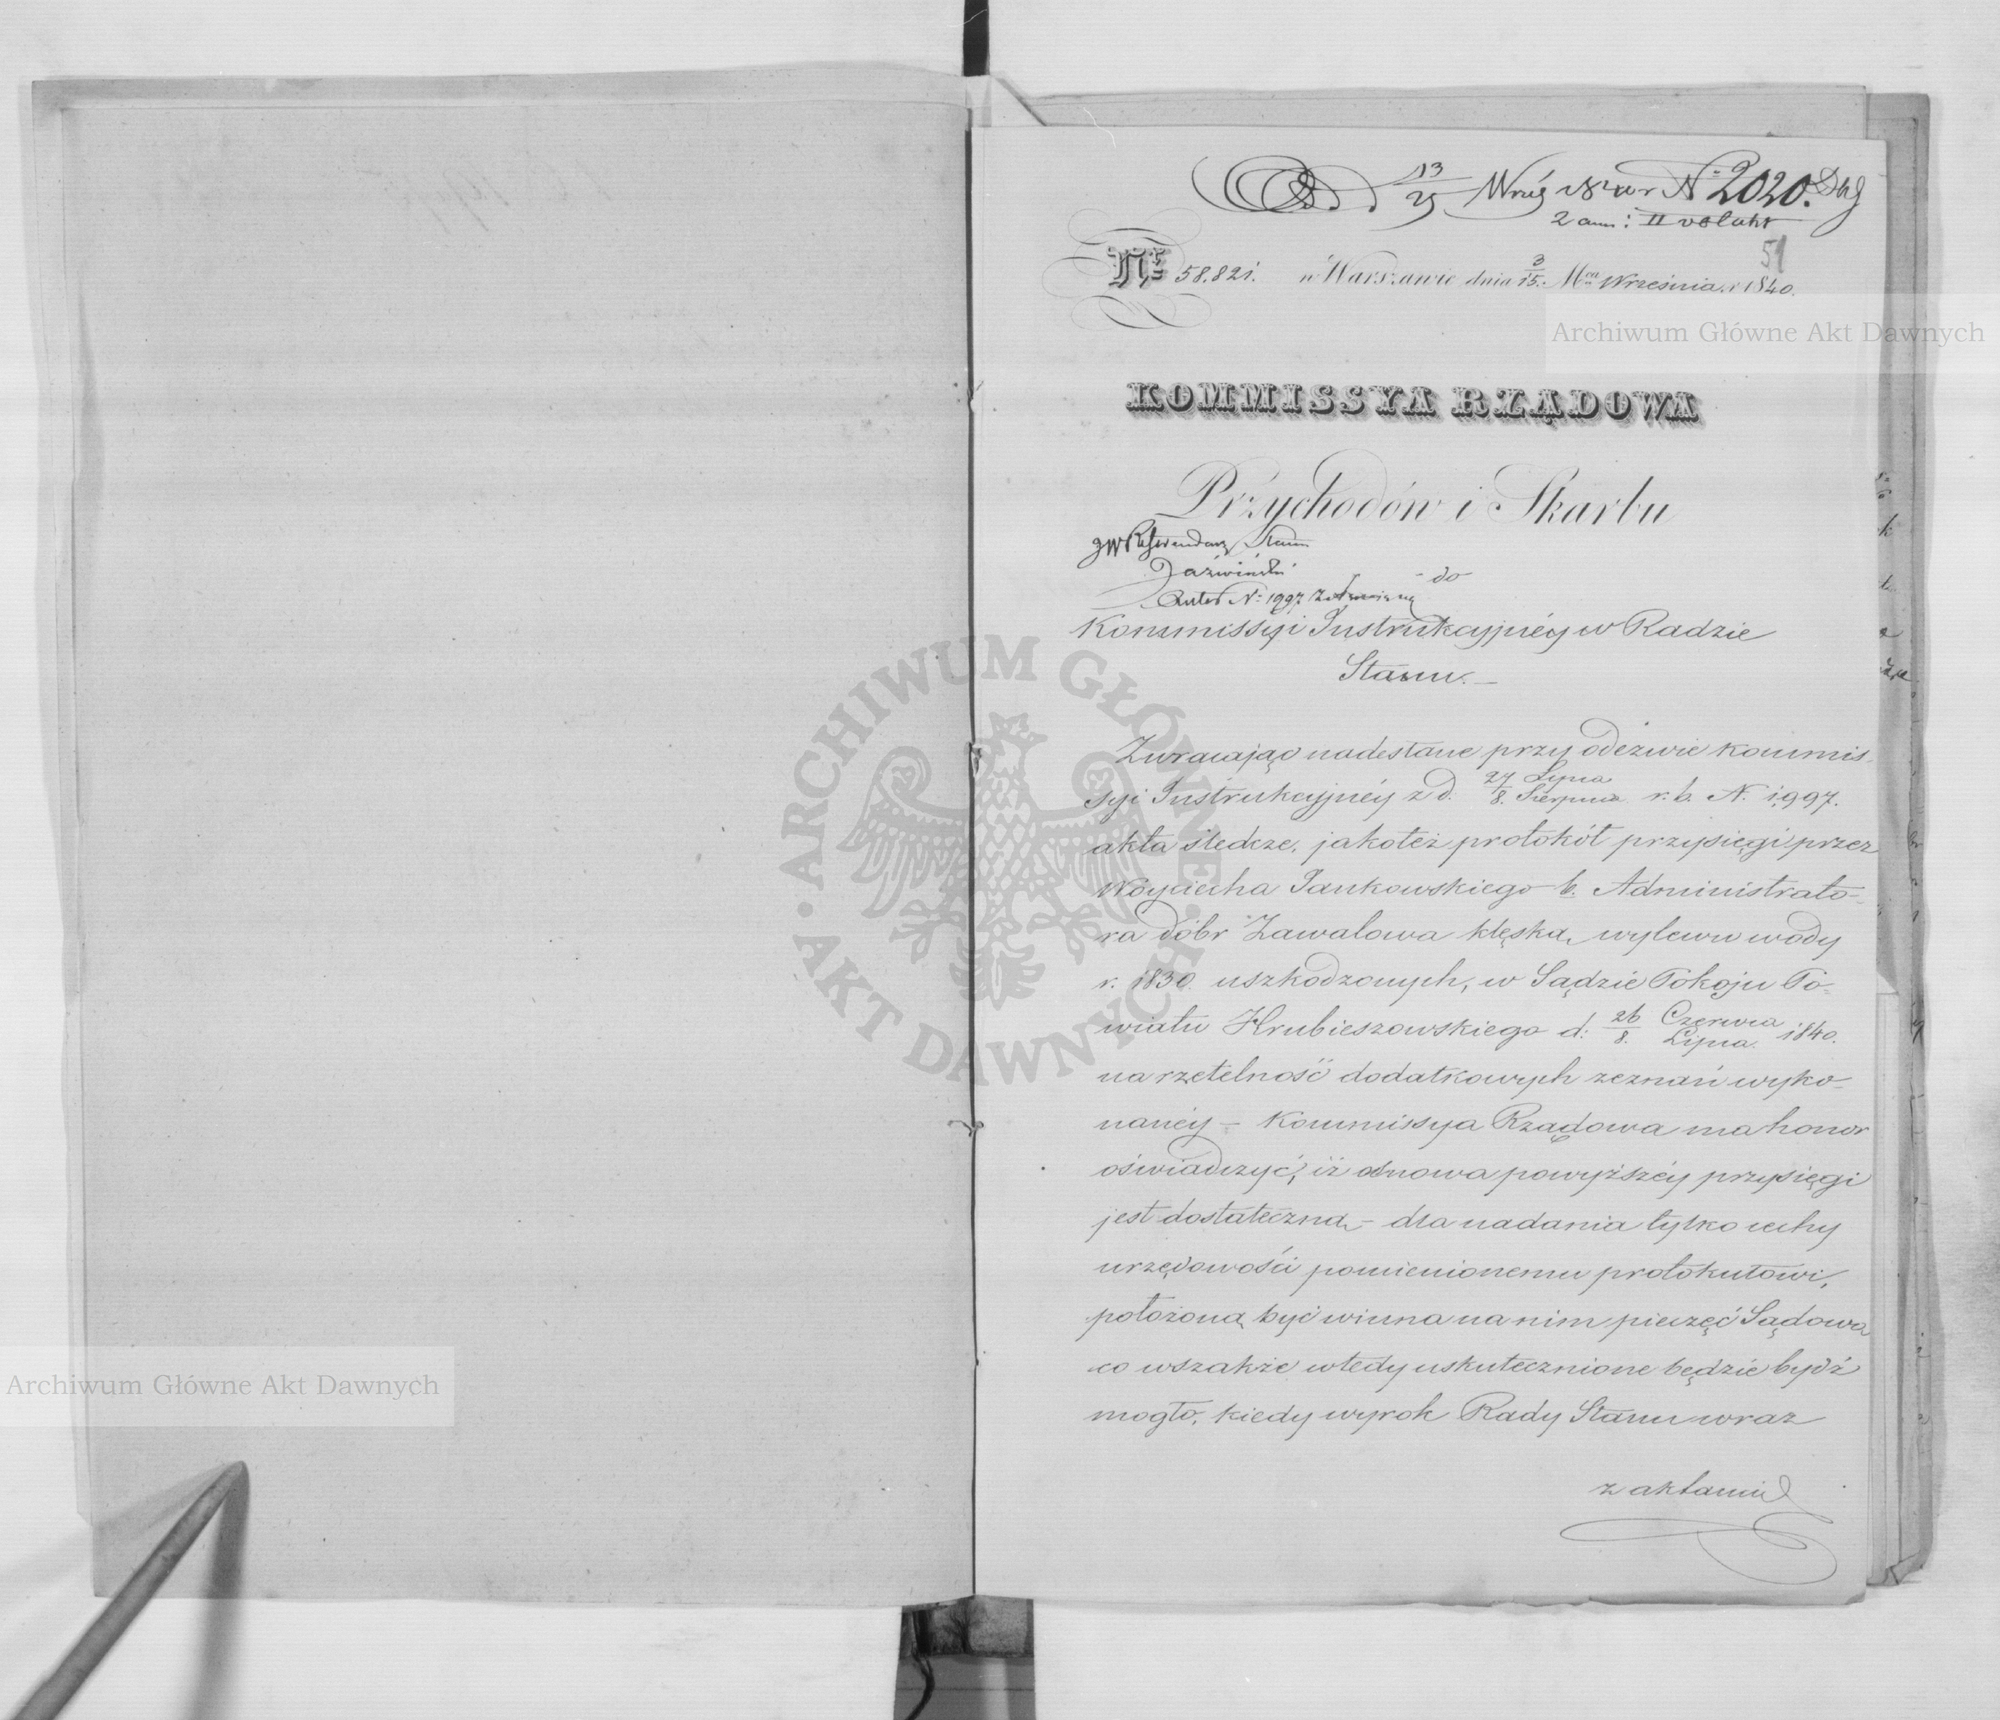 d 13/25 Wrześ 1840 r N: 2020. Dbg
2 ann: II vol akt
51
Nr. 58.821. w Warszawie dnia 3/15. Mca Września r 1840.
Archiwum Główne Akt Dawnych
KOMMISSYA RZĄDOWA
Przychodów i Skarbu
JW Referendarz Stanu
Jaźwiński
do
N: 1997
Kommissyi Instrukcyjnéy w Radzie
Stanu. —
Zwracając nadesłane przy odezwie Kommis-
syi Instrukcyjnéy z d. 27 Lipca / 8. Sierpnia r. b. N. 1,997.
akta śledcze, jakoteż protokół przysięgi przez
Woyciecha Jankowskiego b. Administrato-
ra dóbr Zawalowa klęską wylewu wody
r. 1830. uszkodzonych, w Sądzie Pokoju Po-
wiatu Hrubieszowskiego d: 26 Czerwca / 8. Lipca 1840.
na rzetelność dodatkowych zeznań wyko-
nanéy — Kommissya Rządowa ma honor
oświadczyć, iż osnowa powyższéy przysięgi
jest dostateczną — dla nadania tylko cechy
urzędowości pomienionemu protokułowi,
położoną być winna na nim pieczęć Sądowa
co wszakże wtedy uskutecznione będzie bydź
mogło, kiedy wyrok Rady Stanu wraz
z aktami
ARCHIWUM GŁÓWNE AKT DAWNYCH
Archiwum Główne Akt Dawnych